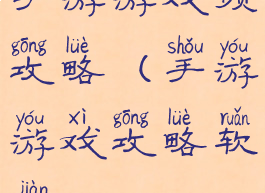 手游游戏领
gōng lüè shǒu yóu
攻略（手游
yóu xì gōng lüè ruǎn
游戏攻略软
jiàn